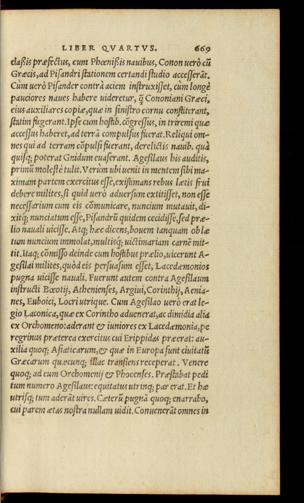 LIBER QVARTVS. 669
claßis præfectus, cum Phœnißis nauibus, Conon uerò cũ
Græcis, ad Pisandri stationem certandi studio accesserāt.
Cùm uerò Pisander contrà aciem instruxisset, cùm longè
pauciores naues habere uideretur, q̃ Cononiani Græci,
eius auxiliares copiæ, quæ in sinistro cornu constiterant,
statim fugerant. Ipse cum hostib. cōgressus, in triremi quæ
accessus haberet, ad terrā compulsus fuerat. Reliqui om-
nes qui ad terram cōpulsi fuerant, derelictis nauib. quà
quisq; poterat Gnidum euaserant. Agesilaus his auditis,
primùm molestè tulit. Verùm ubi uenit in mentem sibi ma-
ximam partem exercitus esse, existimans rebus lætis frui
debere milites, si quid uerò aduersum extitisset, non esse
necessarium cum eis cōmunicare, nuncium mutauit, di-
xitq; nunciatum esse, Pisandrũ quidem cecidisse, sed præ-
lio nauali uicisse. Atq; hæc dicens, bouem tanquam ob læ
tum nuncium immolat, multisq; uictimariam carnē mit-
tit. Itaq; cōmisso deinde cum hostibus prælio, uicerunt A-
gesilai milites, quòd eis persuasum esset, Lacedæmonios
pugna uicisse nauali. Fuerunt autem contra Agesilaum
instructi Bœotij, Athenienses, Argiui, Corinthij, Aenia-
nes, Euboici, Locri utrique. Cum Agesilao uerò erat le-
gio Laconica, quæ ex Corintho aduenerat, ac dimidia alia
ex Orchomeno: aderant & iuniores ex Lacedæmonia, pe
regrinus præterea exercitus cui Erippidas præerat: au-
xilia quoq; Asiaticarum, & quæ in Europa sunt ciuitatũ
Græcarum quæcunq; illàc transiens receperat. Venere
quoq; ad eum Orchomenij & Phocenses. Præstabat pedi
tum numero Agesilaus: equitatus utrinq; par erat. Et hæ
utrisq; tum aderāt uires. Cæterũ pugnā quoq; enarrabo,
cui parem ætas nostra nullam uidit. Conuenerāt omnes in